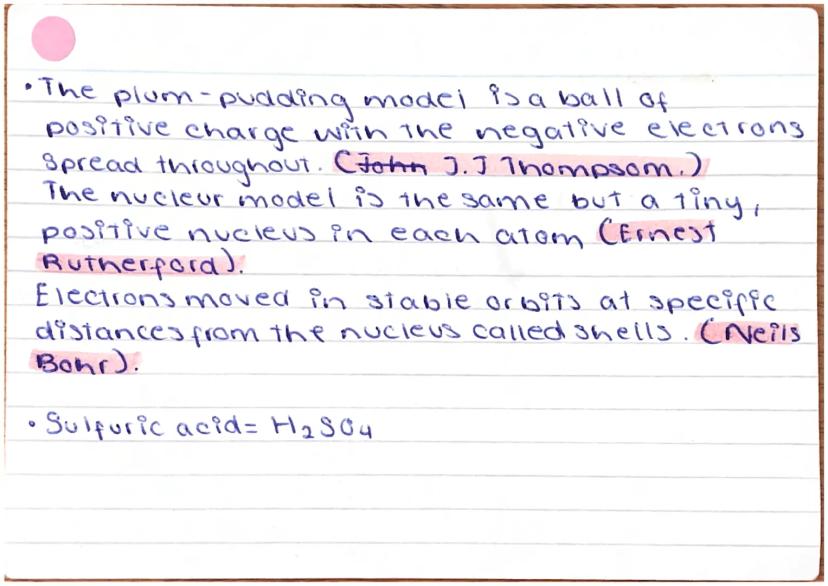 • The plum-pudding model is a ball of
positive charge with the negative electrons
spread throughout. (John J.J Thompsom.)
The nucleur model is the same but a tiny,
positive nucleus in each atom (Ernest
Rutherford).
Electrons moved in stable orbits at specific
distances from the nucleus called shells. (Neils
Bohr).
• Sulfuric acid = H₂SO₄